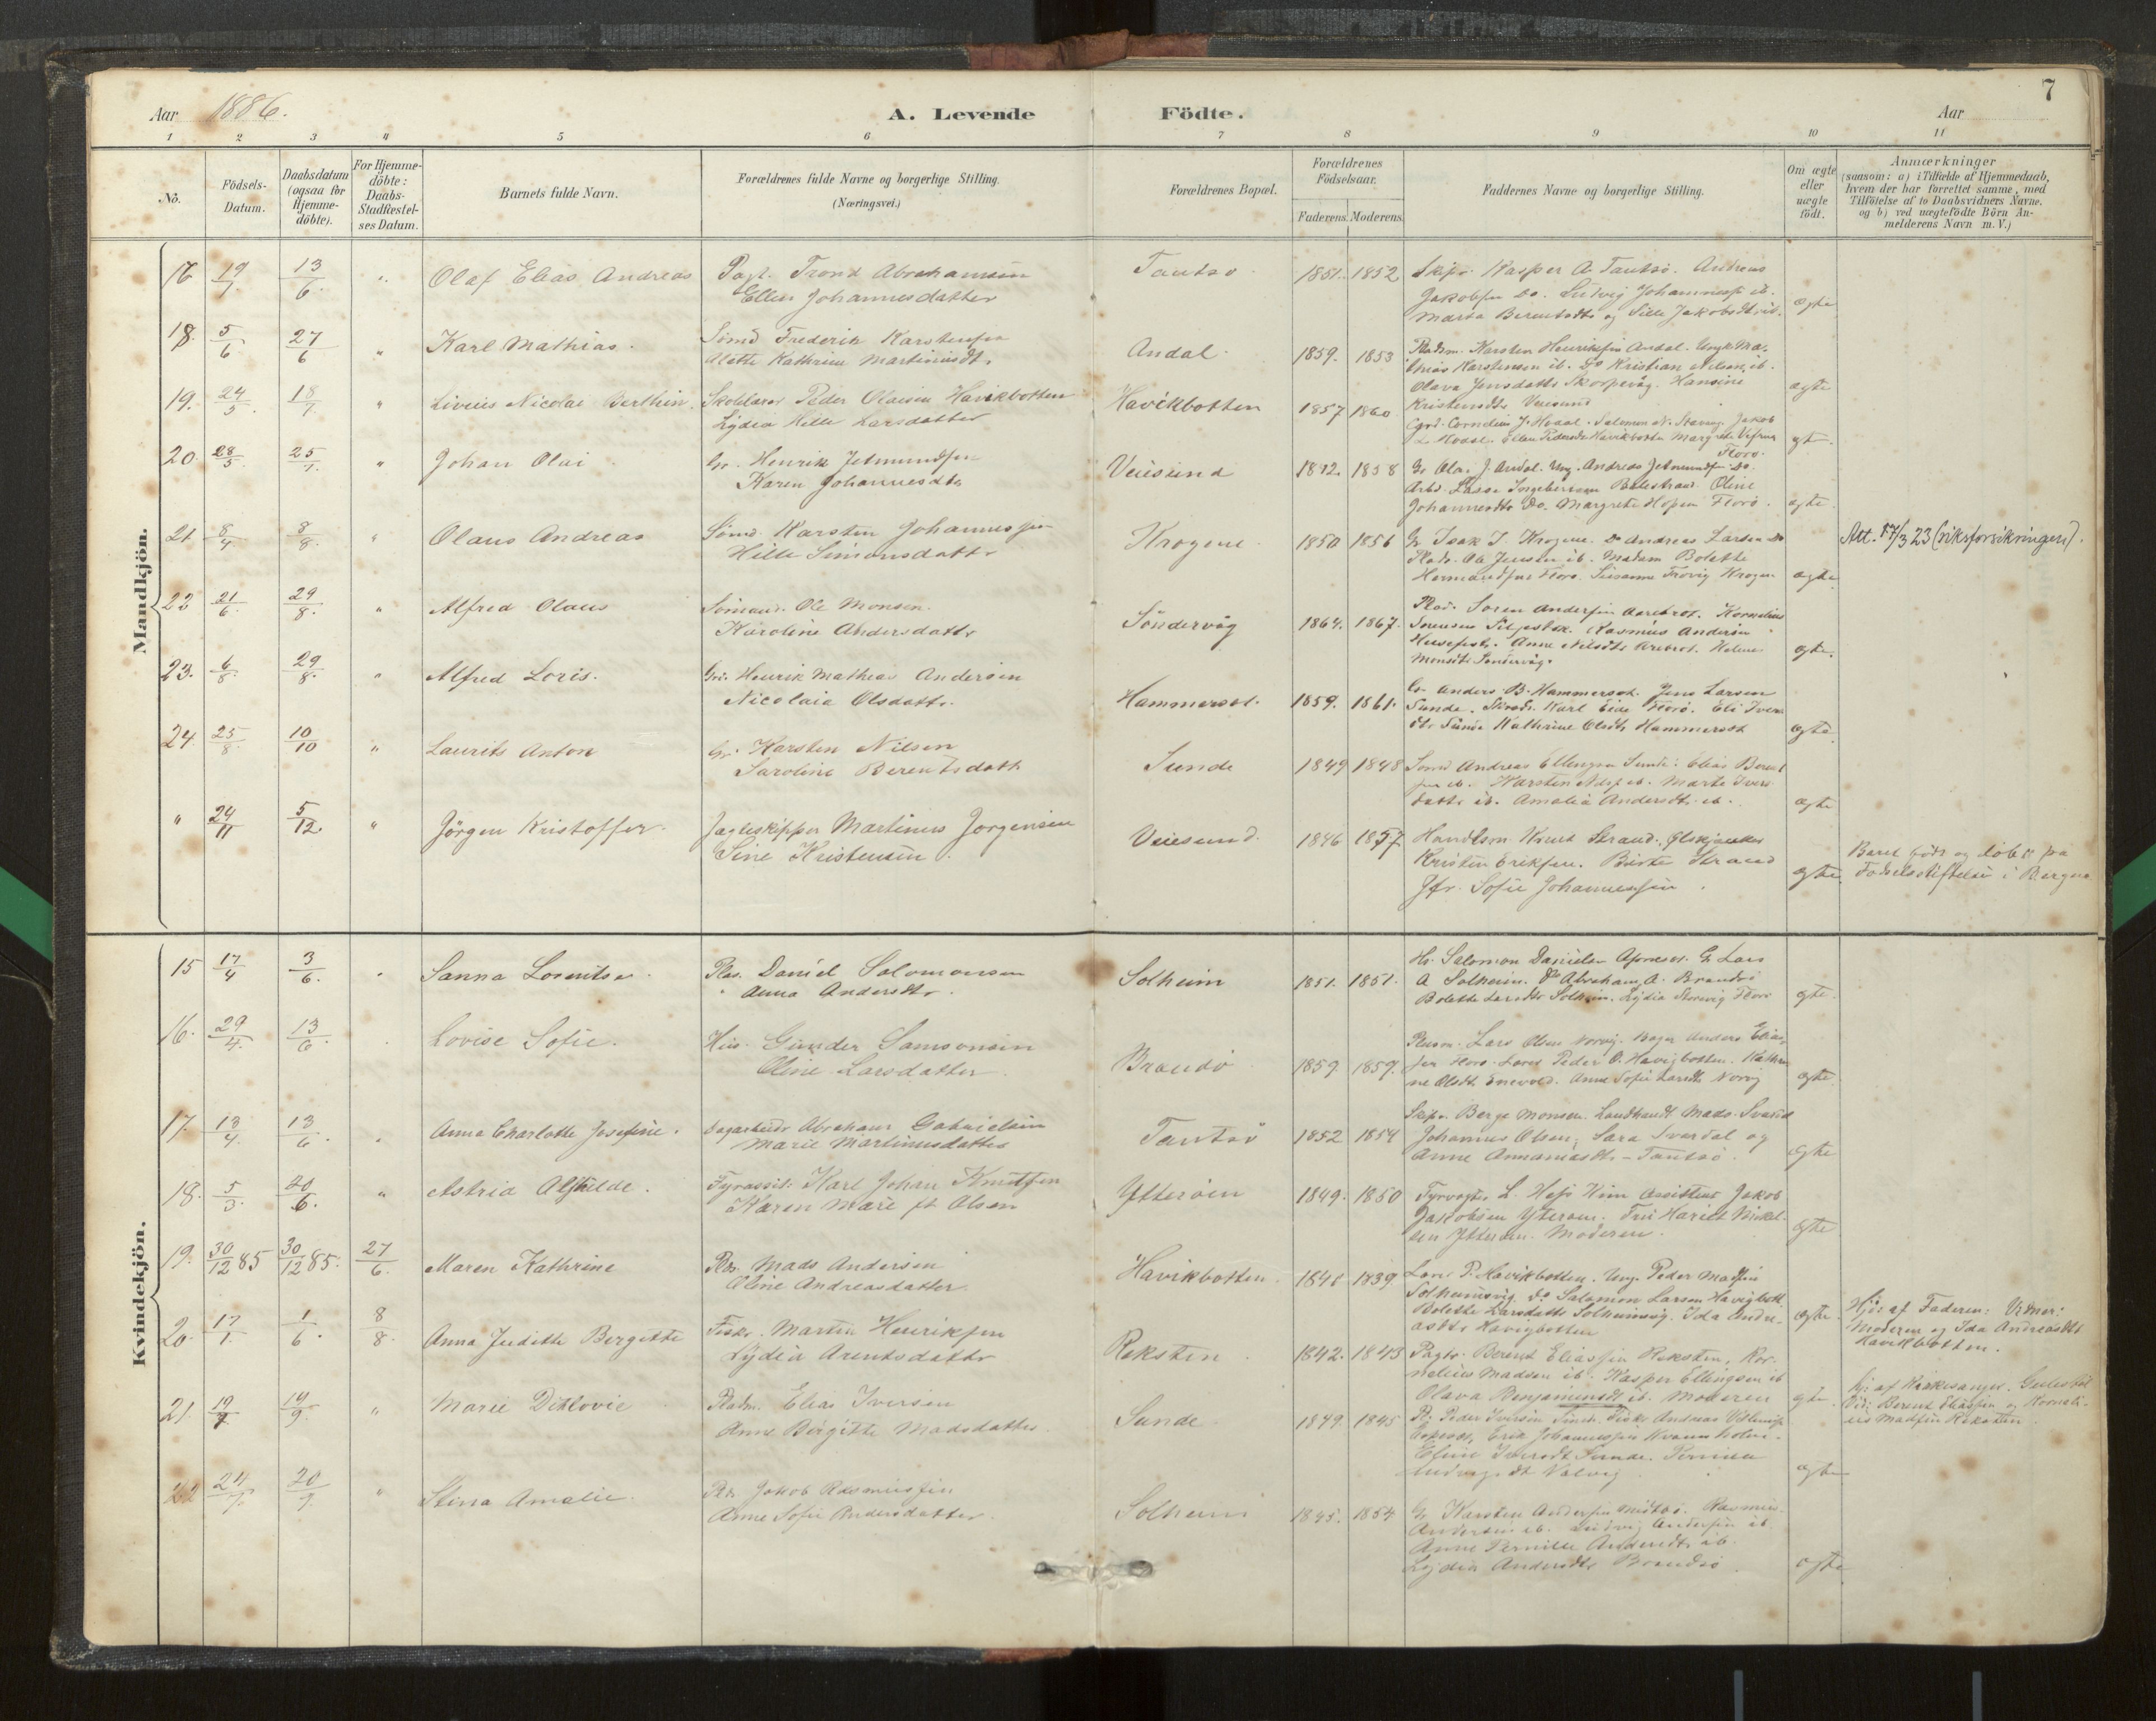 7
Aar 1886.
A. Levende Födte.
Aar
1 2 3 4 5 6 7 8 9 10 11
No.
Födsels-
Datum.
Daabsdatum
(ogsaa for
Hjemme-
döbte).
For Hjemme-
döbte:
Daabs-
Stadfæstel-
ses Datum.
Barnets fulde Navn.
Forældrenes fulde Navne og borgerlige Stilling.
(Næringsvei.)
Forældrenes Bopæl.
Forældrenes
Födselsaar.
Faderens. Moderens.
Faddernes Navne og borgerlige Stilling.
Om ægte
eller
uægte
födt.
Anmærkninger
(saasom: a) i Tilfælde af Hjemmedaab,
hvem der har forrettet samme, med
Tilföielse af to Daabsvidners Navne.
og b) ved uægtefödte Börn An-
melderens Navn m. V.)
Mandkjön.
13/6 " Olaf Elias Andreas
Trond Abrahamsen
Ellen Johannesdatter
Tautsö 1851. 1852
Skipr Kasper A. Tautsö. Andreas
Jakobsen Do. Ludvig Johannessen ib.
Marta Berentsdtr og Sille Jakobsdtr ib.
ægte
18. 5/6 27/6 " Karl Mathias.
Sömd Frederik Karstensen
Alette Kathrine Martinusdt.
Andal. 1859. 1853
Karsten Henriksen Andal. Ungk Ma-
thias Karstensen ib. Do Kristian Nilsen ib.
Olava Jensdatter Skorpevåg. Hansine
Kristensdtr Veiesund
ægte
19. 24/5 18/7 " Liveus Nicolai Berthin.
Skolelærer Peder Olaisen Havikbotten
Lydia Hille Larsdatter
Havikbotten 1857 1860
Cornelius J. Hodal. Salomon N. Jakob
Hodal. Ellen Pedersdtr Havikbotten
Florö.
20. 28/5 25/7 " Johan Olai
Gr. Henrik Jetmundsen
Karen Johannesdtr
Veiesund 1842. 1858
Gr Ola J. Andal. Ung. Andreas Jetmundsen Do.
Arbd. Lasse Ingebrigtsen Balestrand. Oline
Johannesdtr Do. Margrete Hopen Florö.
ægte
21. 8/4 8/8. " Olaus Andreas
Sömd. Karsten Johannessen
Hille Simonsdattr
Krogene 1850 1856
Gr Isak J. Krogene. Do Andreas Larsen Do
Plads. Ole Jensen ib. Madam Bolette
Hermandsen Florö. Susanne Krogen
ægte
Att. 17/3 23 (riksforsikringen).
22 21/6. 29/8. " Alfred Olaus
Sömand. Ole Monsen.
Karoline Andersdattr
Söndervåg 1864. 1867.
Plad. Sören Andersen Aarebrot. Kornelius
Sörensen Rasmus Andersen
Anne Nilsdtr Arebrot. Helene
Monsdtr Söndervåg.
ægte.
23. 6/8 29/8. " Alfred Loris.
Gr. Henrik Mathias Andersen
Nicolaia Olsdattr.
Hammerset. 1859. 1861.
Gr. Anders B. Hammerset. Jens Larsen
Sunde. Karl Eide Florö. Eli Ivers
dtr Sunde Kathrine Olsdtr Hammerset
ægte
24. 25/8. 10/10 " Laurits Anton
Gr. Karsten Nilsen
Saroline Berentsdattr
Sunde 1849 1848
Sömd Andreas Ellingsen Sunde. Elias Berent
sen ib. Karsten ib. Marte Ivers
dattr ib. Amalia Andersdtr ib.
ægte
" 24/11 5/12. " Jörgen Kristoffer.
Jagteskipper Martinus Jörgensen
Sine Kristensen.
Veiesund. 1846 1857
Handlsm. Knut Strand. Ölskjenker
Kristen Eriksen. Birte Strand
Jfr. Sofie Johannessen.
ægte.
Barnet födt og döbt på
Födselsstiftelse i Bergen
Kvindekjön.
15 17/4 3/6. Sanna Lorentse.
Plas. Daniel Salomonsen
Anna Andersdtr.
Solheim 1851. 1851.
Salomon Danielsen Gr Lars
A Solheim. Do Abraham A. Brandsö
Bolette Larsdtr Solheim. Lydia Florö
ægte.
16. 29/4. 13/6. Lovise Sofie.
Hus. Gunder Samsonsen
Oline Larsdatter
Brandsö 1859 1859.
Lars Olsen Norvig. Bager Anders Elias-
sen Florö. Lærer Peder O. Havigbotten. Kathri
ne Olsdt. Anne Sofie Larsdtr Norvig
ægte
17. 13/4 13/6. Anna Charlotte Josefine.
Dagarbeider Abraham Gabrielsen
Marie Martinusdatter
Tautsö 1852 1854
Skipr. Berge Monsen. Landhandl Mads Svardal
Johannes Olsen, Sara Svardal og
Anne Annaniasdtr - Tautsö.
ægte
18. 5/3. 20/6. " Astrid Alfhilde.
Fyrassist. Karl Johan Knutsen
Karen Marie ft Olsen
Ytteröen 1849. 1850
Fyrvogter L. Assistent Jakob
Jakobsen Yteröen. Fru Harriet Mikel-
sen Ytteröen. Moderen.
ægte
19. 30/12 85 30/12 85. 27/6. Maren Kathrine
Plds. Mads Andersen
Oline Andreasdatter.
Havikbotten 1839.
Lærer P. Havikbotten. Ung. Peder Madsen
Solheimsvig. Do Salomon Larsen Havigbott
Bolette Larsdattr Solheimsvig. Ida Andre-
asdtr Havigbotten
ægte.
Hjd: af Faderen: Vidner:
Moderen og Ida Andreasdtr
Havikbotten.
20. 17/1. 1/6. 8/8. Anna Judithe Bergitte
Fiskr. Martin Henriksen
Lydia Arentsdattr
Reksten. 1842. 1843
Berent Eliassen Reksten, Kor-
nelius Madsen ib. Kasper Ellingsen ib
Olava Benjaminsdt ib. Moderen
ægte
Hj: af Kirkesanger
Vid: Berent Eliassen og Korneli-
us Madsen Reksten
21. 19/9. " Marie Ditlovie
Pladsm. Elias Iversen
Anne Birgitte Madsdatter
Sunde 1849. 1845
Peder Iversen Sunde. Fiskr Andreas
Erik Johannessen
Eline Iversdt Sunde. Pernille
ægte
22 24/7. " Stina Amalie.
Plds. Jakob Rasmussen
Anne Sofie Andersdatter.
Solheim 1845. 1854
Gr Karsten Andersen Midtbö. Rasmus
Andersen ib. Ludvig Andersen ib.
Anne Pernille Andersdtr ib.
Lydia Andersdtr Brandsö
ægte